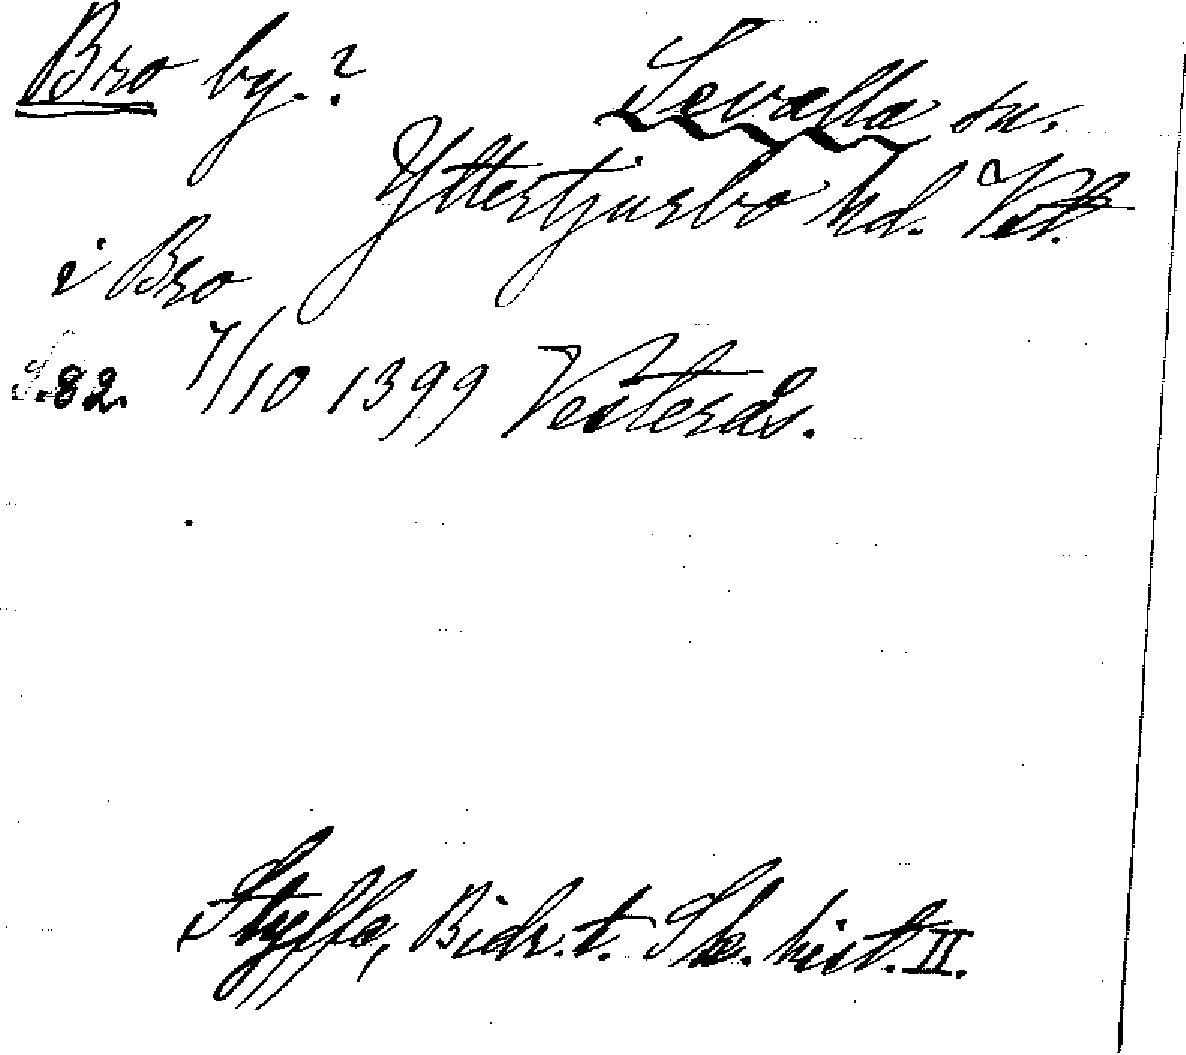 Bro by.? Sevalla sn.
Yttertjurbo hd. Vstl.
i Bro
S.82. 7/10 1399 Vesterås.
Styffe, Bidr. t. Sk. hist. II.